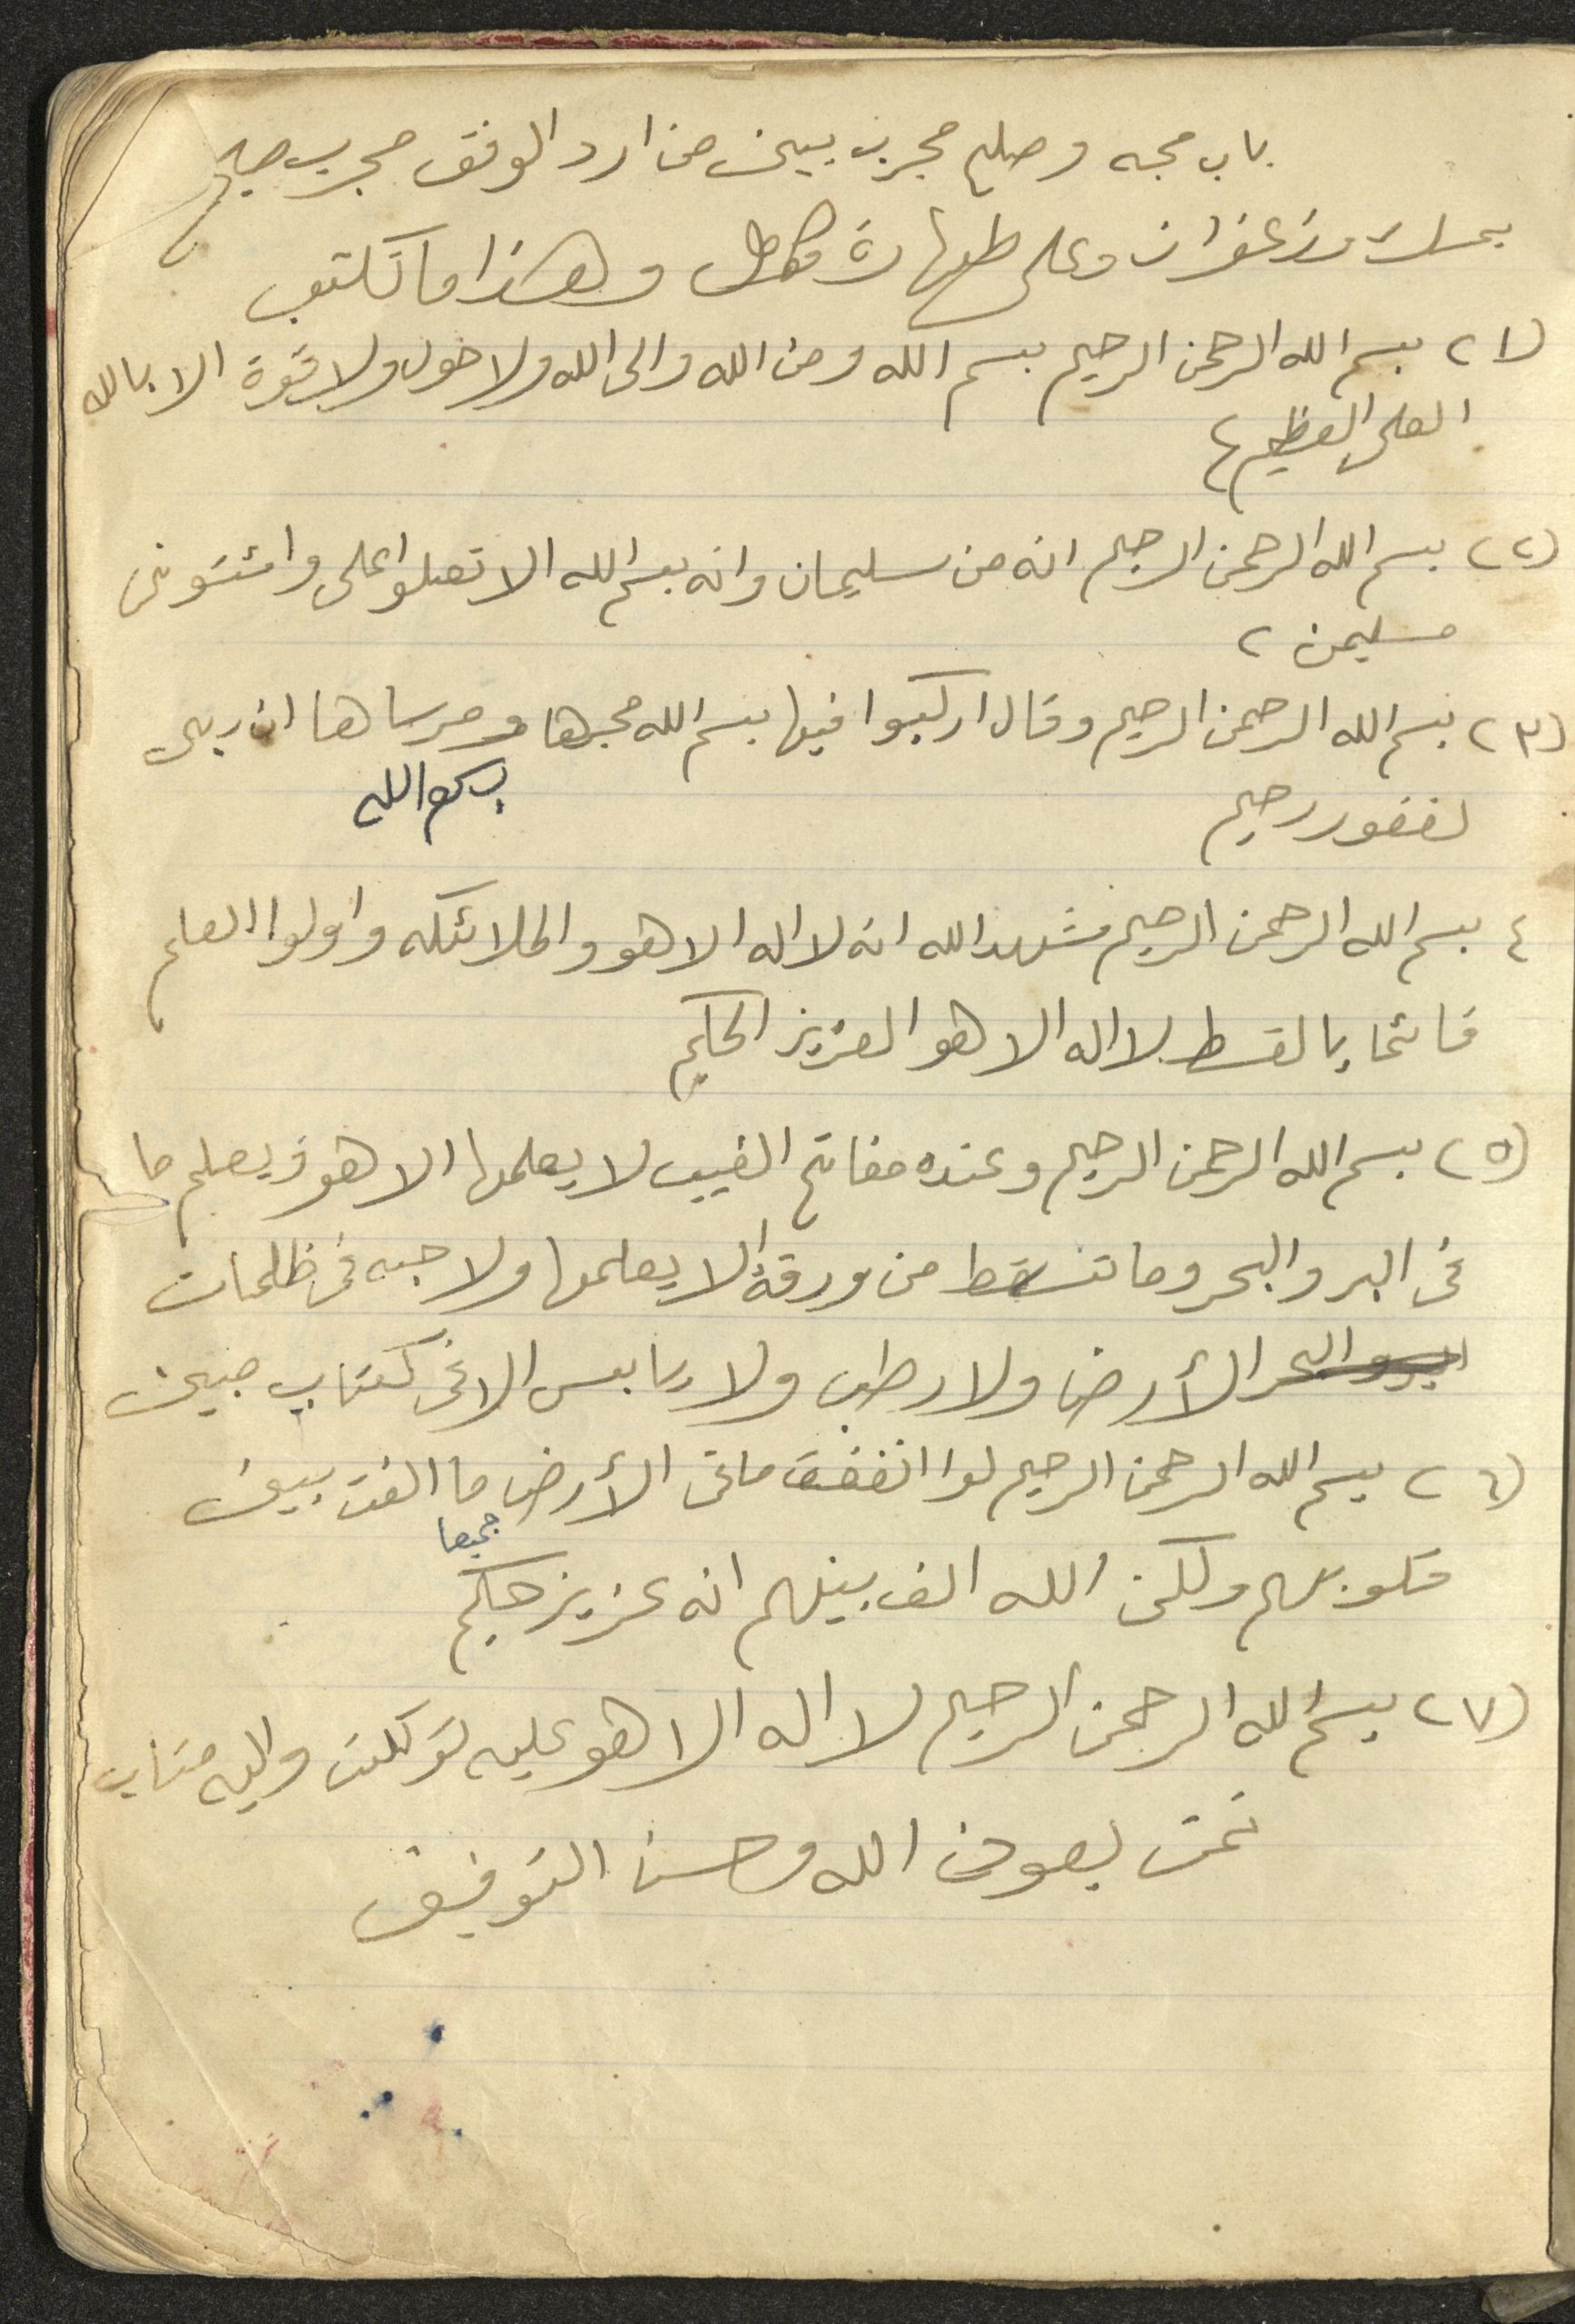 باب محبه وصلح مجرب بين من ارد الوفق مجرب صح
بمسك وزعفران وعلى طهارة كامله وهذا ما تكتب
(١) بسم الله الرحمن الرحيم بسم الله ومن الله والى الله ولا حول ولا قوة الا بالله
العلى العظيم
(٢) بسم الله الرحمن الرحيم انه من سليمان وانه بسم الله الا تعلوا على وائتونى
مسليمن
(٣) بسم الله الرحمن الرحيم وقال اركبوا فيها بسم الله مجرها ومرساها ان ربى
لغفور رحيم
بسم الله
٤ بسم الله الرحمن الرحيم شهد الله انه لا اله الا هو والملائكه واولوا العلم
قائما بالقسط لا اله الا هو العزيز الحكيم
(٥) بسم الله الرحمن الرحيم وعنده مفاتح الغيب لا يعلمها الا هو ويعلم ما
فى البر والبحر وما تسقط من ورقة الا يعلمها ولا حبه فى ظلمات
البر والبحر الأرض ولا رطب ولا يابس الا فى كتاب مبين
(٦) بسم الله الرحمن الرحيم لوا انفقت ما فى الأرض ما الفت بين
جميعا
قلوبهم ولكن الله الف بينهم انه عزيز حكيم
(٧) بسم الله الرحمن الرحيم لا اله الا هو عليه توكلت واليه متاب
تمت بعون الله وحسن التوفيق